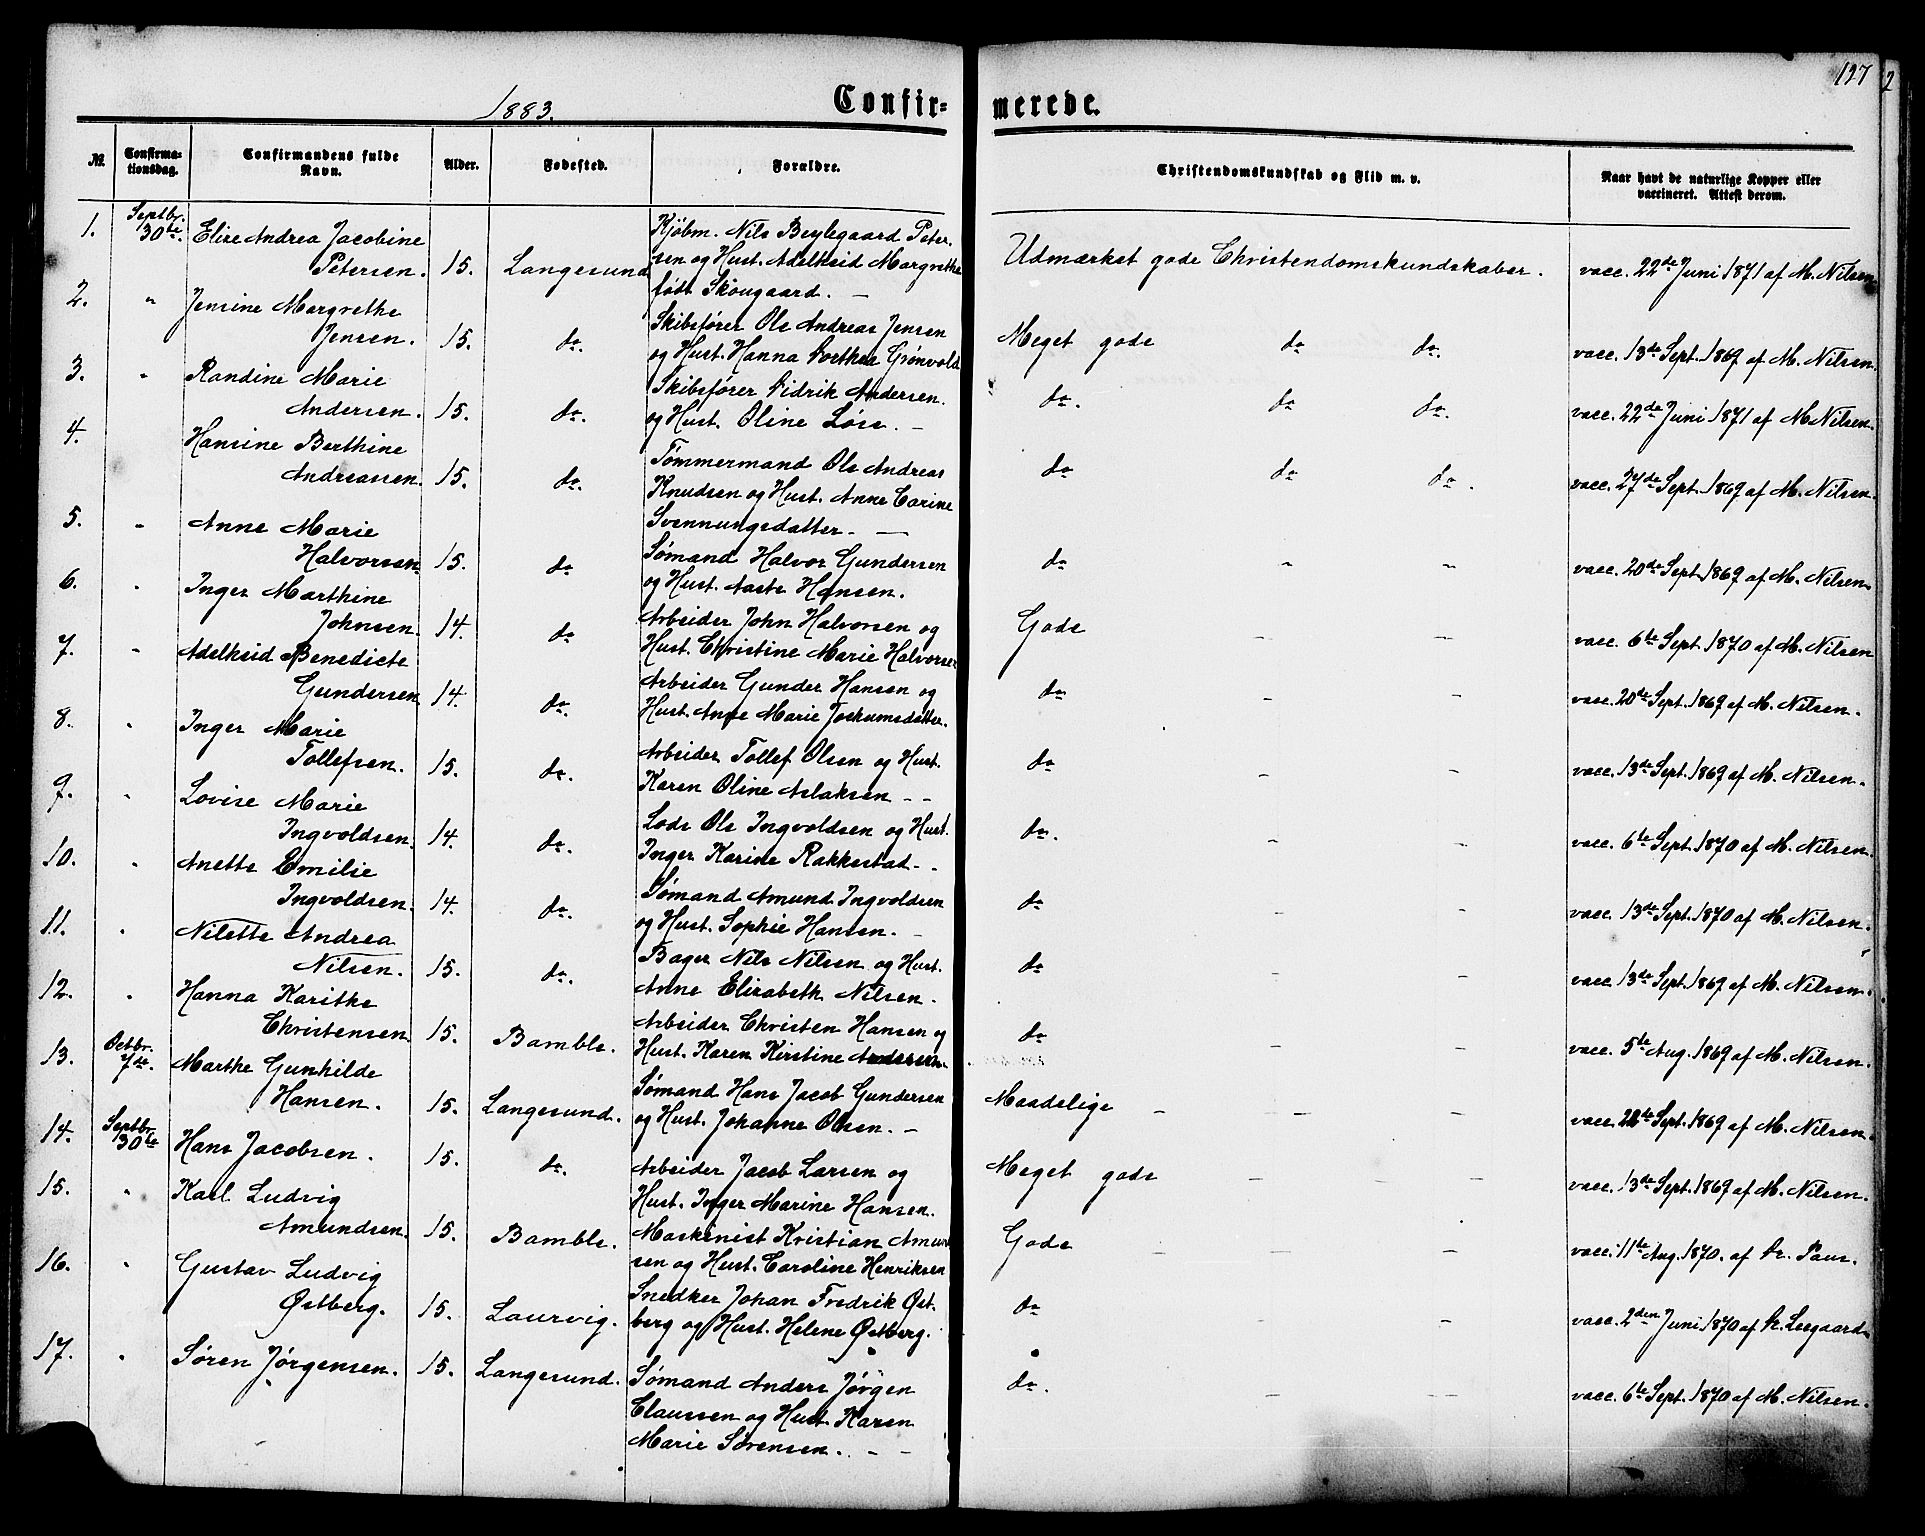 127
2
1883.
Confir- merede.
№.
Confirma-
tionsdag.
Confirmandens fulde
Navn.
Alder.
Fødested.
Forældre.
Christendomskundskab og Flid m. v.
Naar havt de naturlige Kopper eller
vaccineret. Attest derom.
1. Septbr. 30te. Elise Andrea Jacobine Kjøbm. Nils Beylegaard Peter-
Petersen. 15. Langesund sen og Hust. Adelheid Margrethe Udmærket gode Christendomskundskaber. vacc. 22de Juni 1871 af M. Nilsen.
født Skougaard. —
2. " Jensine Margrethe Skibsfører Ole Andreas Jensen
Jensen. 15. do. og Hust. Hanna Dorthea Grønvold. Meget gode do do. vacc. 13de Sept. 1869 af M. Nilsen.
3. " Randine Marie Skibsfører Didrik Andersen
Andersen. 15. do. og Hust. Oline Løse. — do. do do. vacc. 22de Juni 1871 af M. Nilsen.
4. Hansine Berthine Tømmermand Ole Andreas
Andreassen. 15. do. Knudsen og Hust. Anne Carine do do do. vacc. 27de Sept. 1869 af M. Nilsen.
Svennungsdatter. —
5. " Anne Marie Sømand Halvor Gundersen
Halvorsen. 15. do og Hust. Aaste Hansen. do " " vacc. 20de Sept. 1869 af M. Nilsen.
6. " Inger Marthine Arbeider John Halvorsen og
Johnsen. 14. do Hust. Christine Marie Halvorsen Gode — — vacc. 6te Sept. 1870 af M. Nilsen
7. " Adelheid Benedicte Arbeider Gunder Hansen og
Gundersen 14. do. Hust. Anne Marie Jochumsdatter. do — — vacc. 20de Sept. 1869 af M. Nilsen.
8. " Inger Marie Arbeider Tollef Olsen og Hust.
Tollefsen. 15. do. Karen Oline Aslaksen — — do — — vacc. 13de Sept. 1869 af M. Nilsen.
9. " Lovise Marie Lods Ole Ingvoldsen og Hust.
Ingvoldsen. 14. do. Inger Karine Rakkestad — — do. — — vacc. 6te Sept. 1870 af M. Nilsen.
10. " Anette Emilie Sømand Amund Ingvoldsen
Ingvoldsen. 14. do. og Hust. Sophie Hansen. — do — — vacc. 13de Sept. 1870 af M. Nilsen.
11. " Nilette Andrea Bager Nils Nilsen og Hust.
Nilsen. 15. do. Anne Elisabeth Nilsen. do — — vacc. 13de Sept. 1869 af M. Nilsen.
12. " Hanna Karithe Arbeider Christen Hansen og
Christensen 15. Bamble. Hust. Karen Kirstine Andersen. do — — vacc. 5te Aug. 1869 af M. Nilsen.
13. Octbr. 7de. Marthe Gunhilde Sømand Hans Jacob Gundersen
Hansen. 15. Langesund. og Hust. Johanne Olsen. — Maadelige — — — vacc. Sept. 1869 af M. Nilsen.
14. Septbr. 30te Hans Jacobsen. 15. do. Arbeider Jacob Larsen og Meget gode — — — vacc. 13de Sept. 1869 af M. Nilsen.
Hust. Inger Marine Hansen.
15. " Karl Ludvig Maskinist Kristian Amund-
Amundsen. 15. Bamble. sen og Hust. Caroline Henriksen Gode — — — vacc. 11te Aug. 1870. af Dr. Paus.
16. " Gustav Ludvig Snedker Johan Fredrik Øst-
Østberg. 15. Laurvig. berg og Hust. Helene Østberg. do — vacc. 2den Juni 1870 af Dr. Leegaard.
17. " Søren Jørgensen. 15. Langesund. Sømand Anders Jørgen do. — — — vacc. 6te Sept. 1870 af M. Nilsen.
Claussen og Hust. Karen
Marie Sørensen. — —